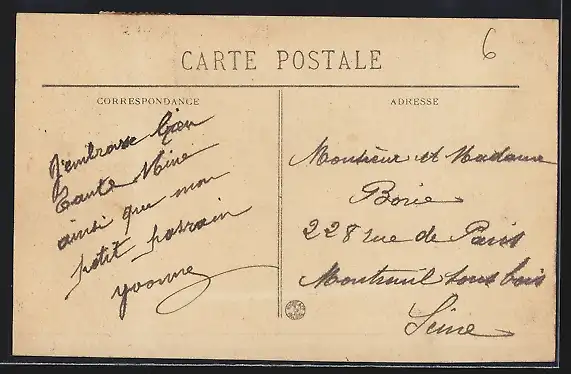 6
CARTE POSTALE
CORRESPONDANCE
J'embrasse bien
tante Mine
ainsi que mon
petit parrain
Yvonne
ADRESSE
Monsieur et Madame
Borie
228 rue de Paris
Montreuil sous bois
Seine